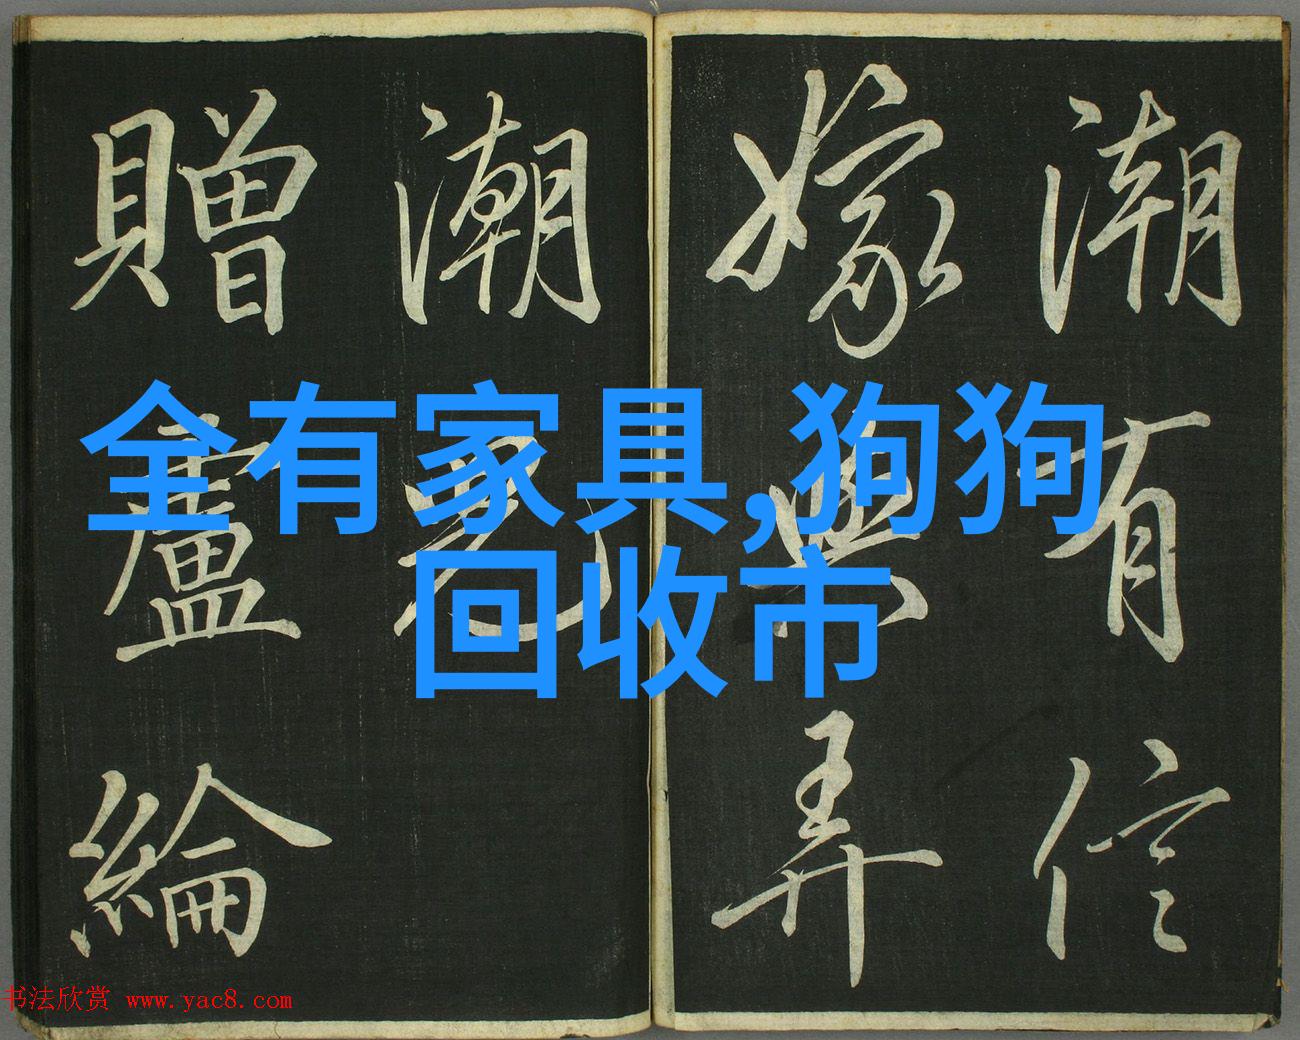 潮有信
嫁與弄
潮兒
贈盧綸
全有家具,狗狗
回收市
书法欣赏 www.yac8.com